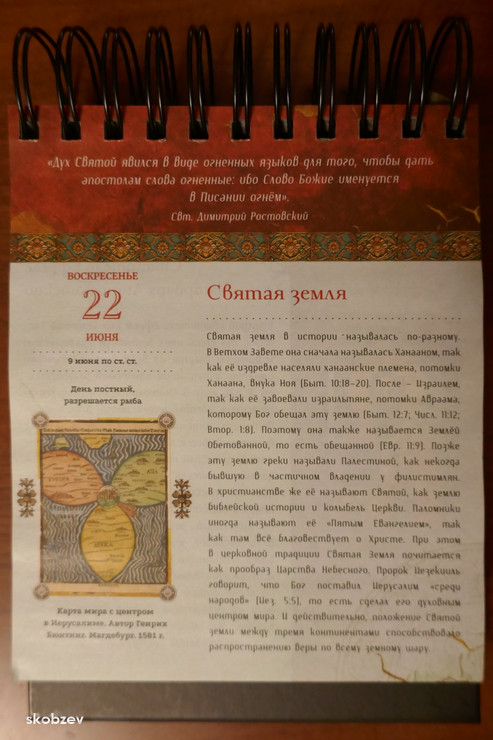 «Дух Святой явился в виде огненных языков для того, чтобы дать
апостолам слова огненные: ибо Слово Божие именуется
в Писании огнём».
Свт. Димитрий Ростовский
ВОСКРЕСЕНЬЕ
22
ИЮНЯ
9 июня по ст. ст.
День постный,
разрешается рыба
Карта мира с центром
в Иерусалиме. Автор Генрих
Бюнтинг. Магдебург. 1581 г.
Святая земля
Святая земля в истории называлась по-разному.
В Ветхом Завете она сначала называлась Ханааном, так
как её издревле населяли ханаанские племена, потомки
Ханаана, внука Ноя (Быт. 10:18–20). После – Израилем,
так как её завоевали израильтяне, потомки Авраама,
которому Бог обещал эту землю (Быт. 12:7; Числ. 11:12;
Втор. 1:8). Поэтому она также называется Землёй
Обетованной, то есть обещанной (Евр. 11:9). Позже
эту землю греки называли Палестиной, как некогда
бывшую в частичном владении у филистимлян.
В христианстве же её называют Святой, как землю
библейской истории и колыбель Церкви. Паломники
иногда называют её «Пятым Евангелием», так
как там всё благовествует о Христе. При этом
в церковной традиции Святая Земля почитается
как прообраз Царства Небесного. Пророк Иезекииль
говорит, что Бог поставил Иерусалим «среди
народов» (Иез. 5:5), то есть сделал его духовным
центром мира. И действительно, положение Святой
земли между тремя континентами способствовало
распространению веры по всему земному шару.
skobzev